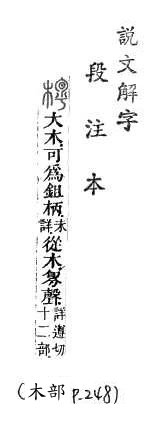 說文解字
段注本
大木可爲鉏柄未詳從木聲詳遵切十二部
(木部 P.248)